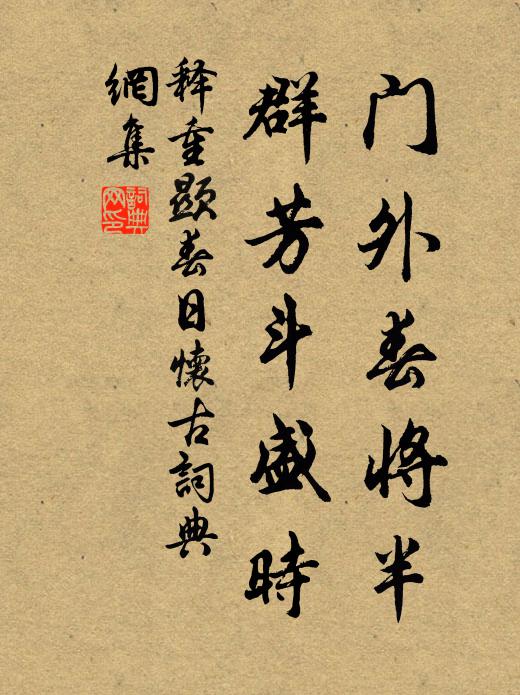 门外春将半
群芳斗盛時
释重顕春日懷古詞典
網集
詞典
网印